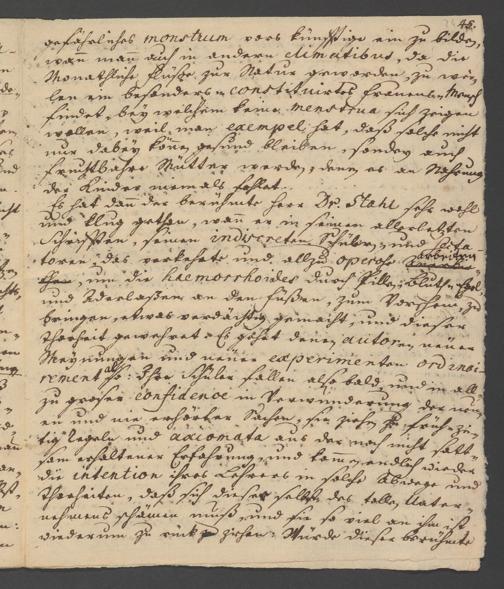 48.
gefährliches monstrum vors künfftige ein zu bilden,
wan man auch in andern climatibus, da die
Monathliche Flüße zur Natur geworden, zu wei-
len ein besonders constituirtes Frauens Mensch
findet, bey welchem keine menstrua sich zeigen
wollen, weil man exempel hat, daß solche nicht
nur dabey könen gesund bleiben, sondern auch
fruchtbahre Mütter werden, denen es an Nahrung
der Kinder niemals fehlet.
Es hat dann der berühmte Herr Dr. Stahl sehr wohl
und klug gethan, wann er in seinen allerletzten
Schrifften, seinen indiscreten Schülern, und
toren, das verkehrte und allzu operose
um die haemorrhoides durch Pillen,
und Aderlaßen an den Füßen, zum Vorschein zu
bringen, etwas verdächtig gemacht, und dieser
Thorheit gewehret. Es gehet denen autoren neuer
Meynungen und neuer experimenten ordinai-
rement also: Ihre Schüler fallen alsobald und in all-
zu großer confidence in Verwunderung der neu-
en und nie erhörten Sachen, sie ziehen früh zei-
tig regeln und axiomata aus der noch nicht satt-
sam erhaltener Erfahrung, und komen endlich wieder
die intention ihres Lehrers in solche Abwege und
Thorheiten, daß sich dieser selbst des tollen Unter-
nehmens schämen muß, und sie so viel an ihm ist
wiederum zu rück ziehen. Würde dieser berühmte